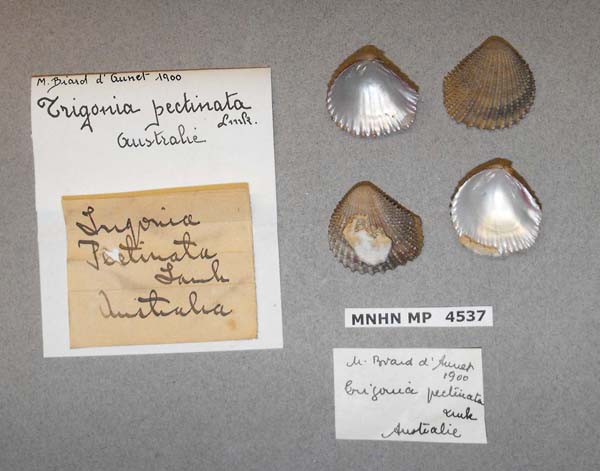 M. Biard d'Aunet 1900
Trigonia pectinata
Lmk.
Australie
Trigonia
Pectinata
Lamk
Australia
MNHN MP 4537
M. Biard d'Aunet
1900
Trigonia pectinata
Lmk
Australie